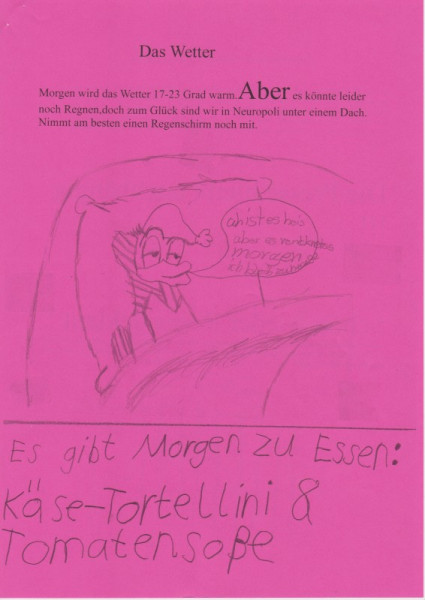 Das Wetter
Morgen wird das Wetter 17-23 Grad warm.Aber es könnte leider
noch Regnen,doch zum Glück sind wir in Neuropoli unter einem Dach.
Nimmt am besten einen Regenschirm noch mit.
ah ist es heis
aber es
morgen
ich
Es gibt Morgen zu Essen:
Käse-Tortellini &
Tomatensoße